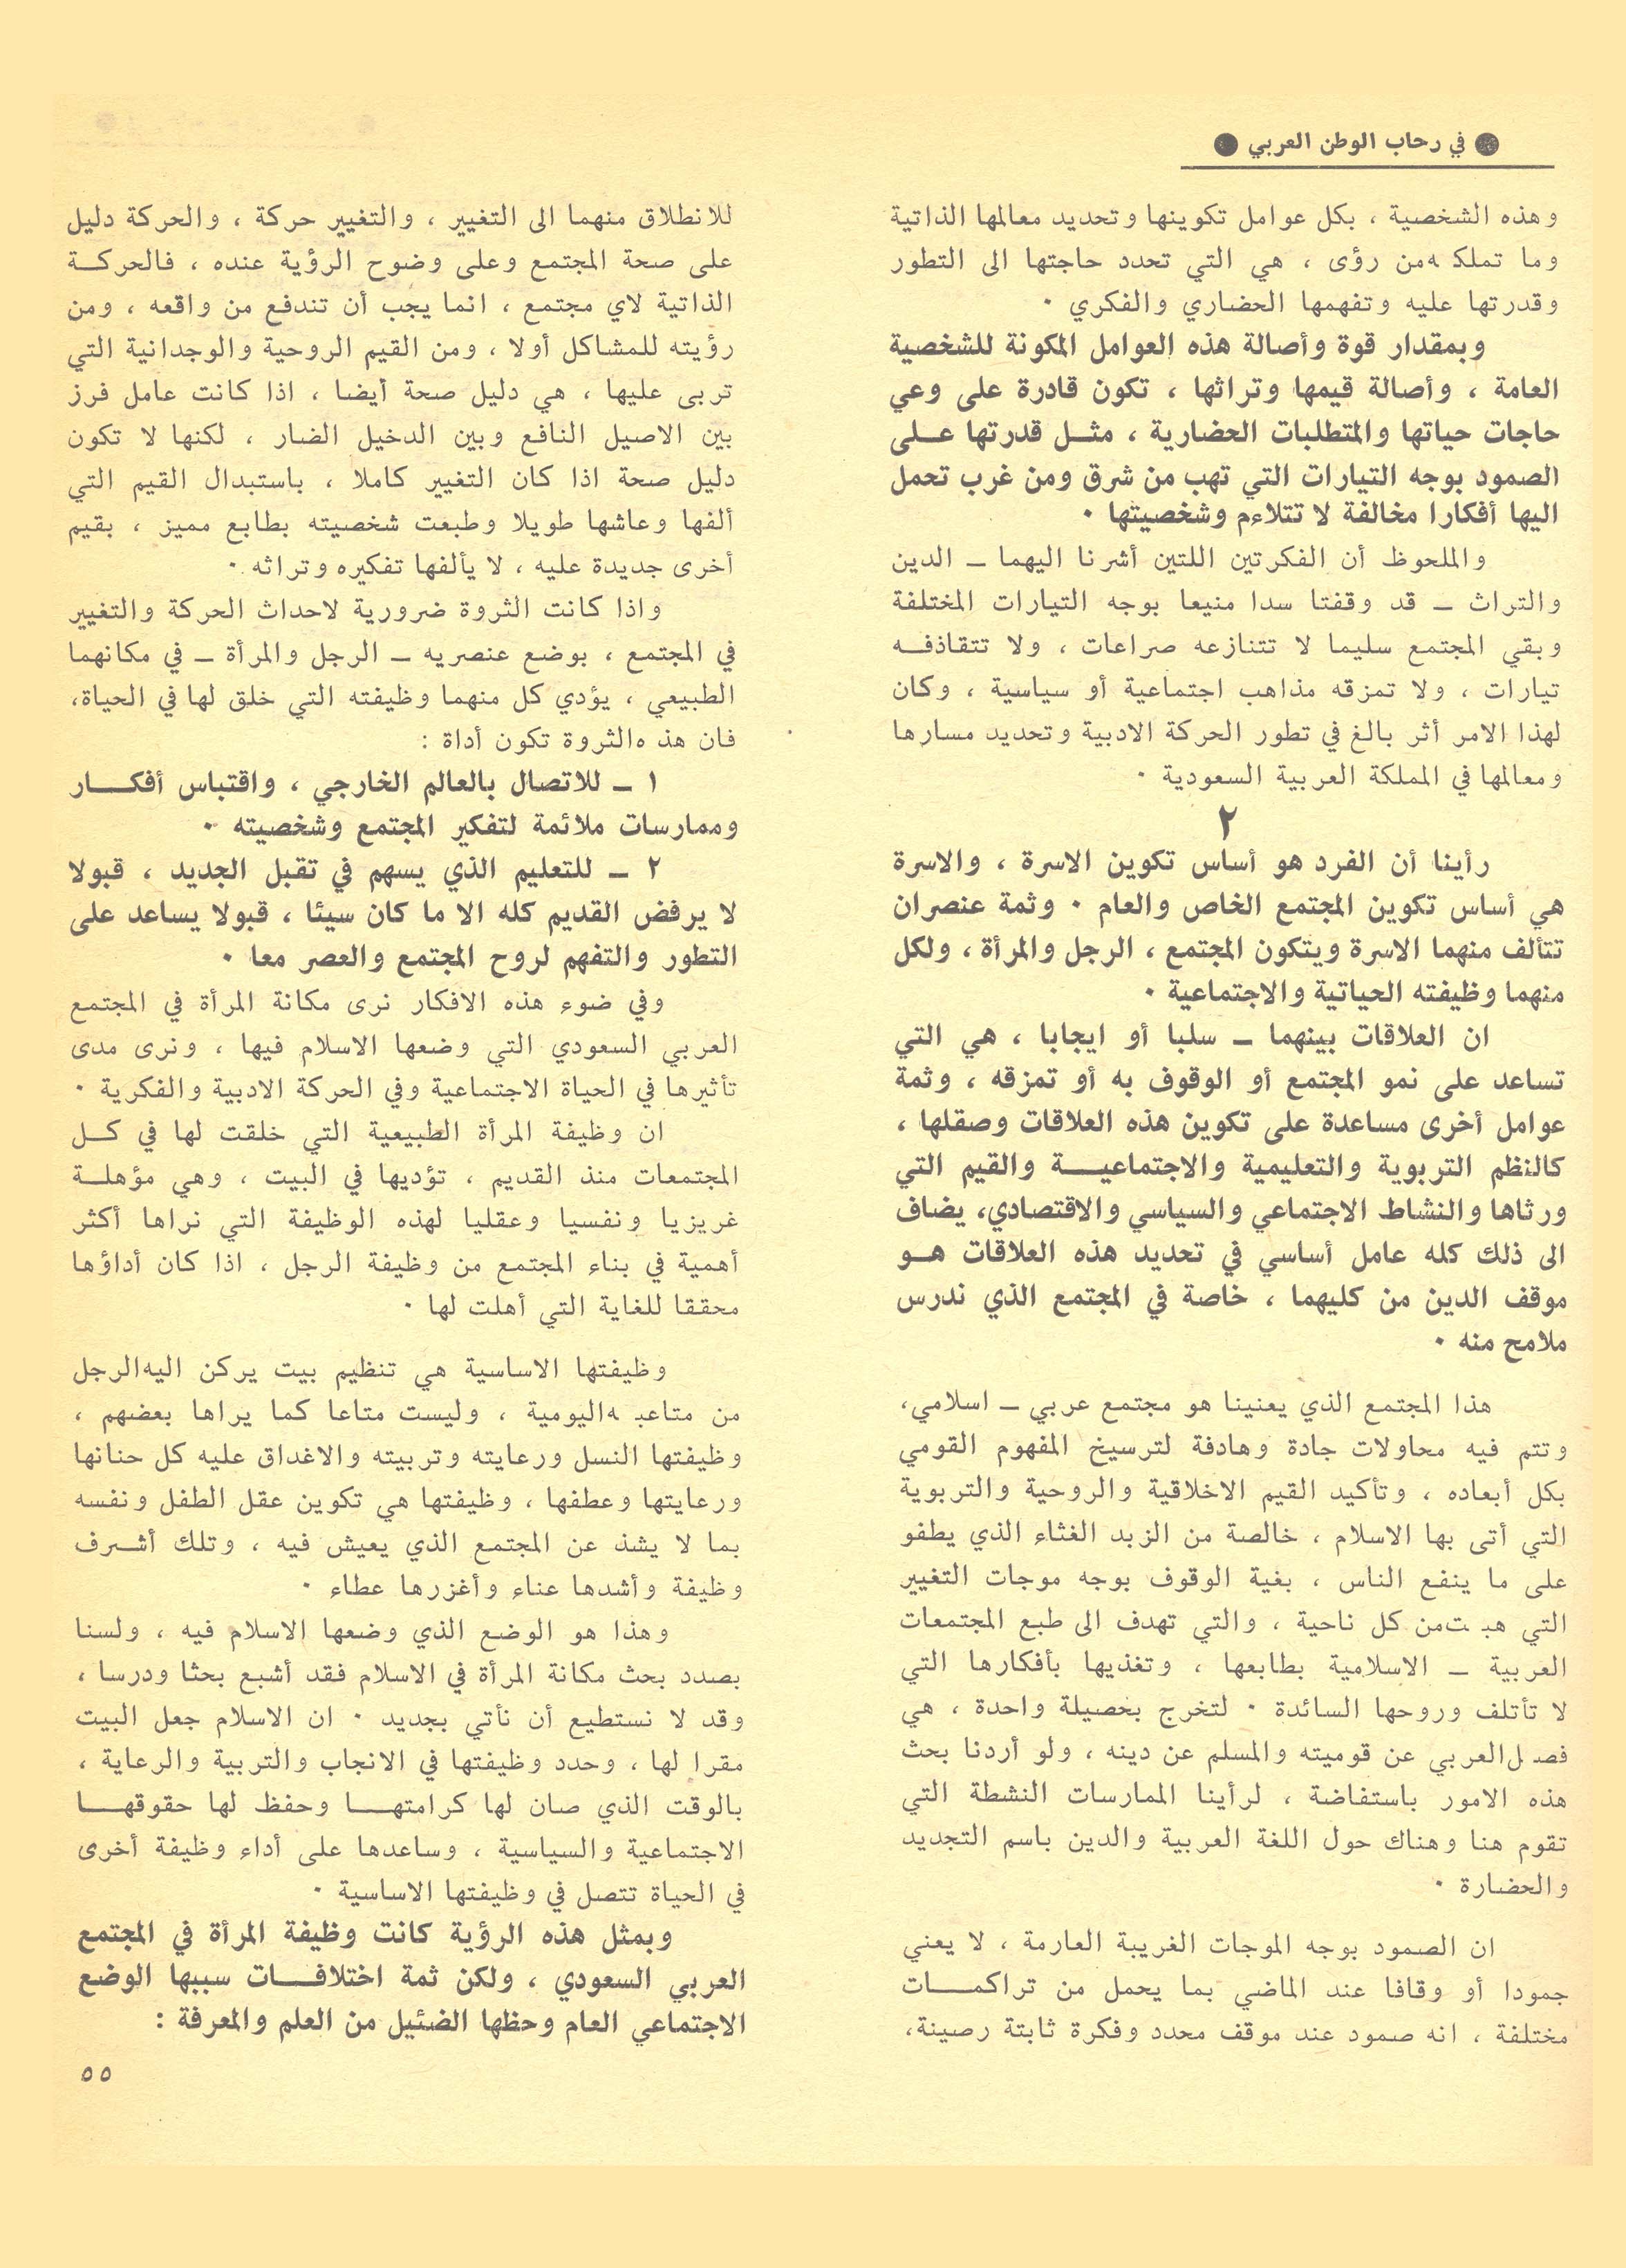 ● في رحاب الوطن العربي ●
وهذه الشخصية ، بكل عوامل تكوينها وتحديد معالمها الذاتية
وما تملكه من رؤى ، هي التي تحدد حاجتها الى التطور
وقدرتها عليه وتفهمها الحضاري والفكري ٠
وبمقدار قوة وأصالة هذه العوامل المكونة للشخصية
العامة ، وأصالة قيمها وتراثها ، تكون قادرة على وعي
حاجات حياتها والمتطلبات الحضارية ، مثل قدرتها على
الصمود بوجه التيارات التي تهب من شرق ومن غرب تحمل
اليها أفكارا مخالفة لا تتلاءم وشخصيتها ٠
والملحوظ أن الفكرتين اللتين أشرنا اليهما ــ الدين
والتراث ــ قد وقفتا سدا منيعا بوجه التيارات المختلفة
وبقي المجتمع سليما لا تتنازعه صراعات ، ولا تتقاذفه
تيارات ، ولا تمزقه مذاهب اجتماعية أو سياسية ، وكان
لهذا الامر أثر بالغ في تطور الحركة الادبية وتحديد مسارها
ومعالمها في المملكة العربية السعودية ٠
٢
رأينا أن الفرد هو أساس تكوين الاسرة ، والاسرة
هي أساس تكوين المجتمع الخاص والعام ٠ وثمة عنصران
تتألف منهما الاسرة ويتكون المجتمع ، الرجل والمرأة ، ولكل
منهما وظيفته الحياتية والاجتماعية ٠
ان العلاقات بينهما ــ سلبا أو ايجابا ، هي التي
تساعد على نمو المجتمع أو الوقوف به أو تمزقه ، وثمة
عوامل أخرى مساعدة على تكوين هذه العلاقات وصقلها ،
كالنظم التربوية والتعليمية والاجتماعية والقيم التي
ورثاها والنشاط الاجتماعي والسياسي والاقتصادي، يضاف
الى ذلك كله عامل أساسي في تحديد هذه العلاقات هو
موقف الدين من كليهما ، خاصة في المجتمع الذي ندرس
ملامح منه ٠
هذا المجتمع الذي يعنينا هو مجتمع عربي ــ اسلامي،
وتتم فيه محاولات جادة وهادفة لترسيخ المفهوم القومي
بكل أبعاده ، وتأكيد القيم الاخلاقية والروحية والتربوية
التي أتى بها الاسلام ، خالصة من الزبد الغثاء الذي يطفو
على ما ينفع الناس ، بغية الوقوف بوجه موجات التغيير
التي هبت من كل ناحية ، والتي تهدف الى طبع المجتمعات
العربية ــ الاسلامية بطابعها ، وتغذيها بأفكارها التي
لا تأتلف وروحها السائدة ٠ لتخرج بحصيلة واحدة ، هي
فصل العربي عن قوميته والمسلم عن دينه ، ولو أردنا بحث
هذه الامور باستفاضة ، لرأينا الممارسات النشطة التي
تقوم هنا وهناك حول اللغة العربية والدين باسم التجديد
والحضارة ٠
ان الصمود بوجه الموجات الغريبة العارمة ، لا يعني
جمودا أو وقافا عند الماضي بما يحمل من تراكمات
مختلفة ، انه صمود عند موقف محدد وفكرة ثابتة رصينة،
للانطلاق منهما الى التغيير ، والتغيير حركة ، والحركة دليل
على صحة المجتمع وعلى وضوح الرؤية عنده ، فالحركة
الذاتية لاي مجتمع ، انما يجب أن تندفع من واقعه ، ومن
رؤيته للمشاكل أولا ، ومن القيم الروحية والوجدانية التي
تربى عليها ، هي دليل صحة أيضا ، اذا كانت عامل فرز
بين الاصيل النافع وبين الدخيل الضار ، لكنها لا تكون
دليل صحة اذا كان التغيير كاملا ، باستبدال القيم التي
ألفها وعاشها طويلا وطبعت شخصيته بطابع مميز ، بقيم
أخرى جديدة عليه ، لا يألفها تفكيره وتراثه ٠
واذا كانت الثروة ضرورية لاحداث الحركة والتغيير
في المجتمع ، بوضع عنصريه ــ الرجل والمرأة ــ في مكانهما
الطبيعي ، يؤدي كل منهما وظيفته التي خلق لها في الحياة،
فان هذه الثروة تكون أداة :
١ ــ للاتصال بالعالم الخارجي ، واقتباس أفكار
وممارسات ملائمة لتفكير المجتمع وشخصيته ٠
٢ ــ للتعليم الذي يسهم في تقبل الجديد ، قبولا
لا يرفض القديم كله الا ما كان سيئا ، قبولا يساعد على
التطور والتفهم لروح المجتمع والعصر معا ٠
وفي ضوء هذه الافكار نرى مكانة المرأة في المجتمع
العربي السعودي التي وضعها الاسلام فيها ، ونرى مدى
تأثيرها في الحياة الاجتماعية وفي الحركة الادبية والفكرية ٠
ان وظيفة المرأة الطبيعية التي خلقت لها في كل
المجتمعات منذ القديم ، تؤديها في البيت ، وهي مؤهلة
غريزيا ونفسيا وعقليا لهذه الوظيفة التي نراها أكثر
أهمية في بناء المجتمع من وظيفة الرجل ، اذا كان أداؤها
محققا للغاية التي أهلت لها ٠
وظيفتها الاساسية هي تنظيم بيت يركن اليه الرجل
من متاعبه اليومية ، وليست متاعا كما يراها بعضهم ،
وظيفتها النسل ورعايته وتربيته والاغداق عليه كل حنانها
ورعايتها وعطفها ، وظيفتها هي تكوين عقل الطفل ونفسه
بما لا يشذ عن المجتمع الذي يعيش فيه ، وتلك أشرف
وظيفة وأشدها عناء وأغزرها عطاء ٠
وهذا هو الوضع الذي وضعها الاسلام فيه ، ولسنا
بصدد بحث مكانة المرأة في الاسلام فقد أشبع بحثا ودرسا ،
وقد لا نستطيع أن نأتي بجديد ٠ ان الاسلام جعل البيت
مقرا لها ، وحدد وظيفتها في الانجاب والتربية والرعاية ،
بالوقت الذي صان لها كرامتها وحفظ لها حقوقها
الاجتماعية والسياسية ، وساعدها على أداء وظيفة أخرى
في الحياة تتصل في وظيفتها الاساسية ٠
وبمثل هذه الرؤية كانت وظيفة المرأة في المجتمع
العربي السعودي ، ولكن ثمة اختلافات سببها الوضع
الاجتماعي العام وحظها الضئيل من العلم والمعرفة :
٥٥